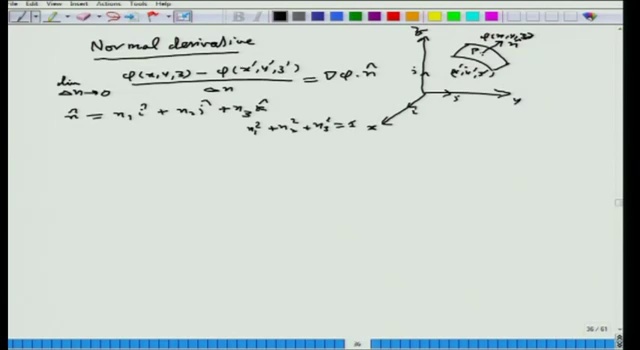 File Edit View Insert Actions Tools Help
Normal derivative
lim Δn→0 φ(x,y,z) - φ(x',y',z') / Δn = ∇φ·n̂
n̂ = n₁î + n₂ĵ + n₃k̂
n₁² + n₂² + n₃² = 1
z
φ(x,y,z)
P
n
(x',y',z')
y
x
26 / 61
26